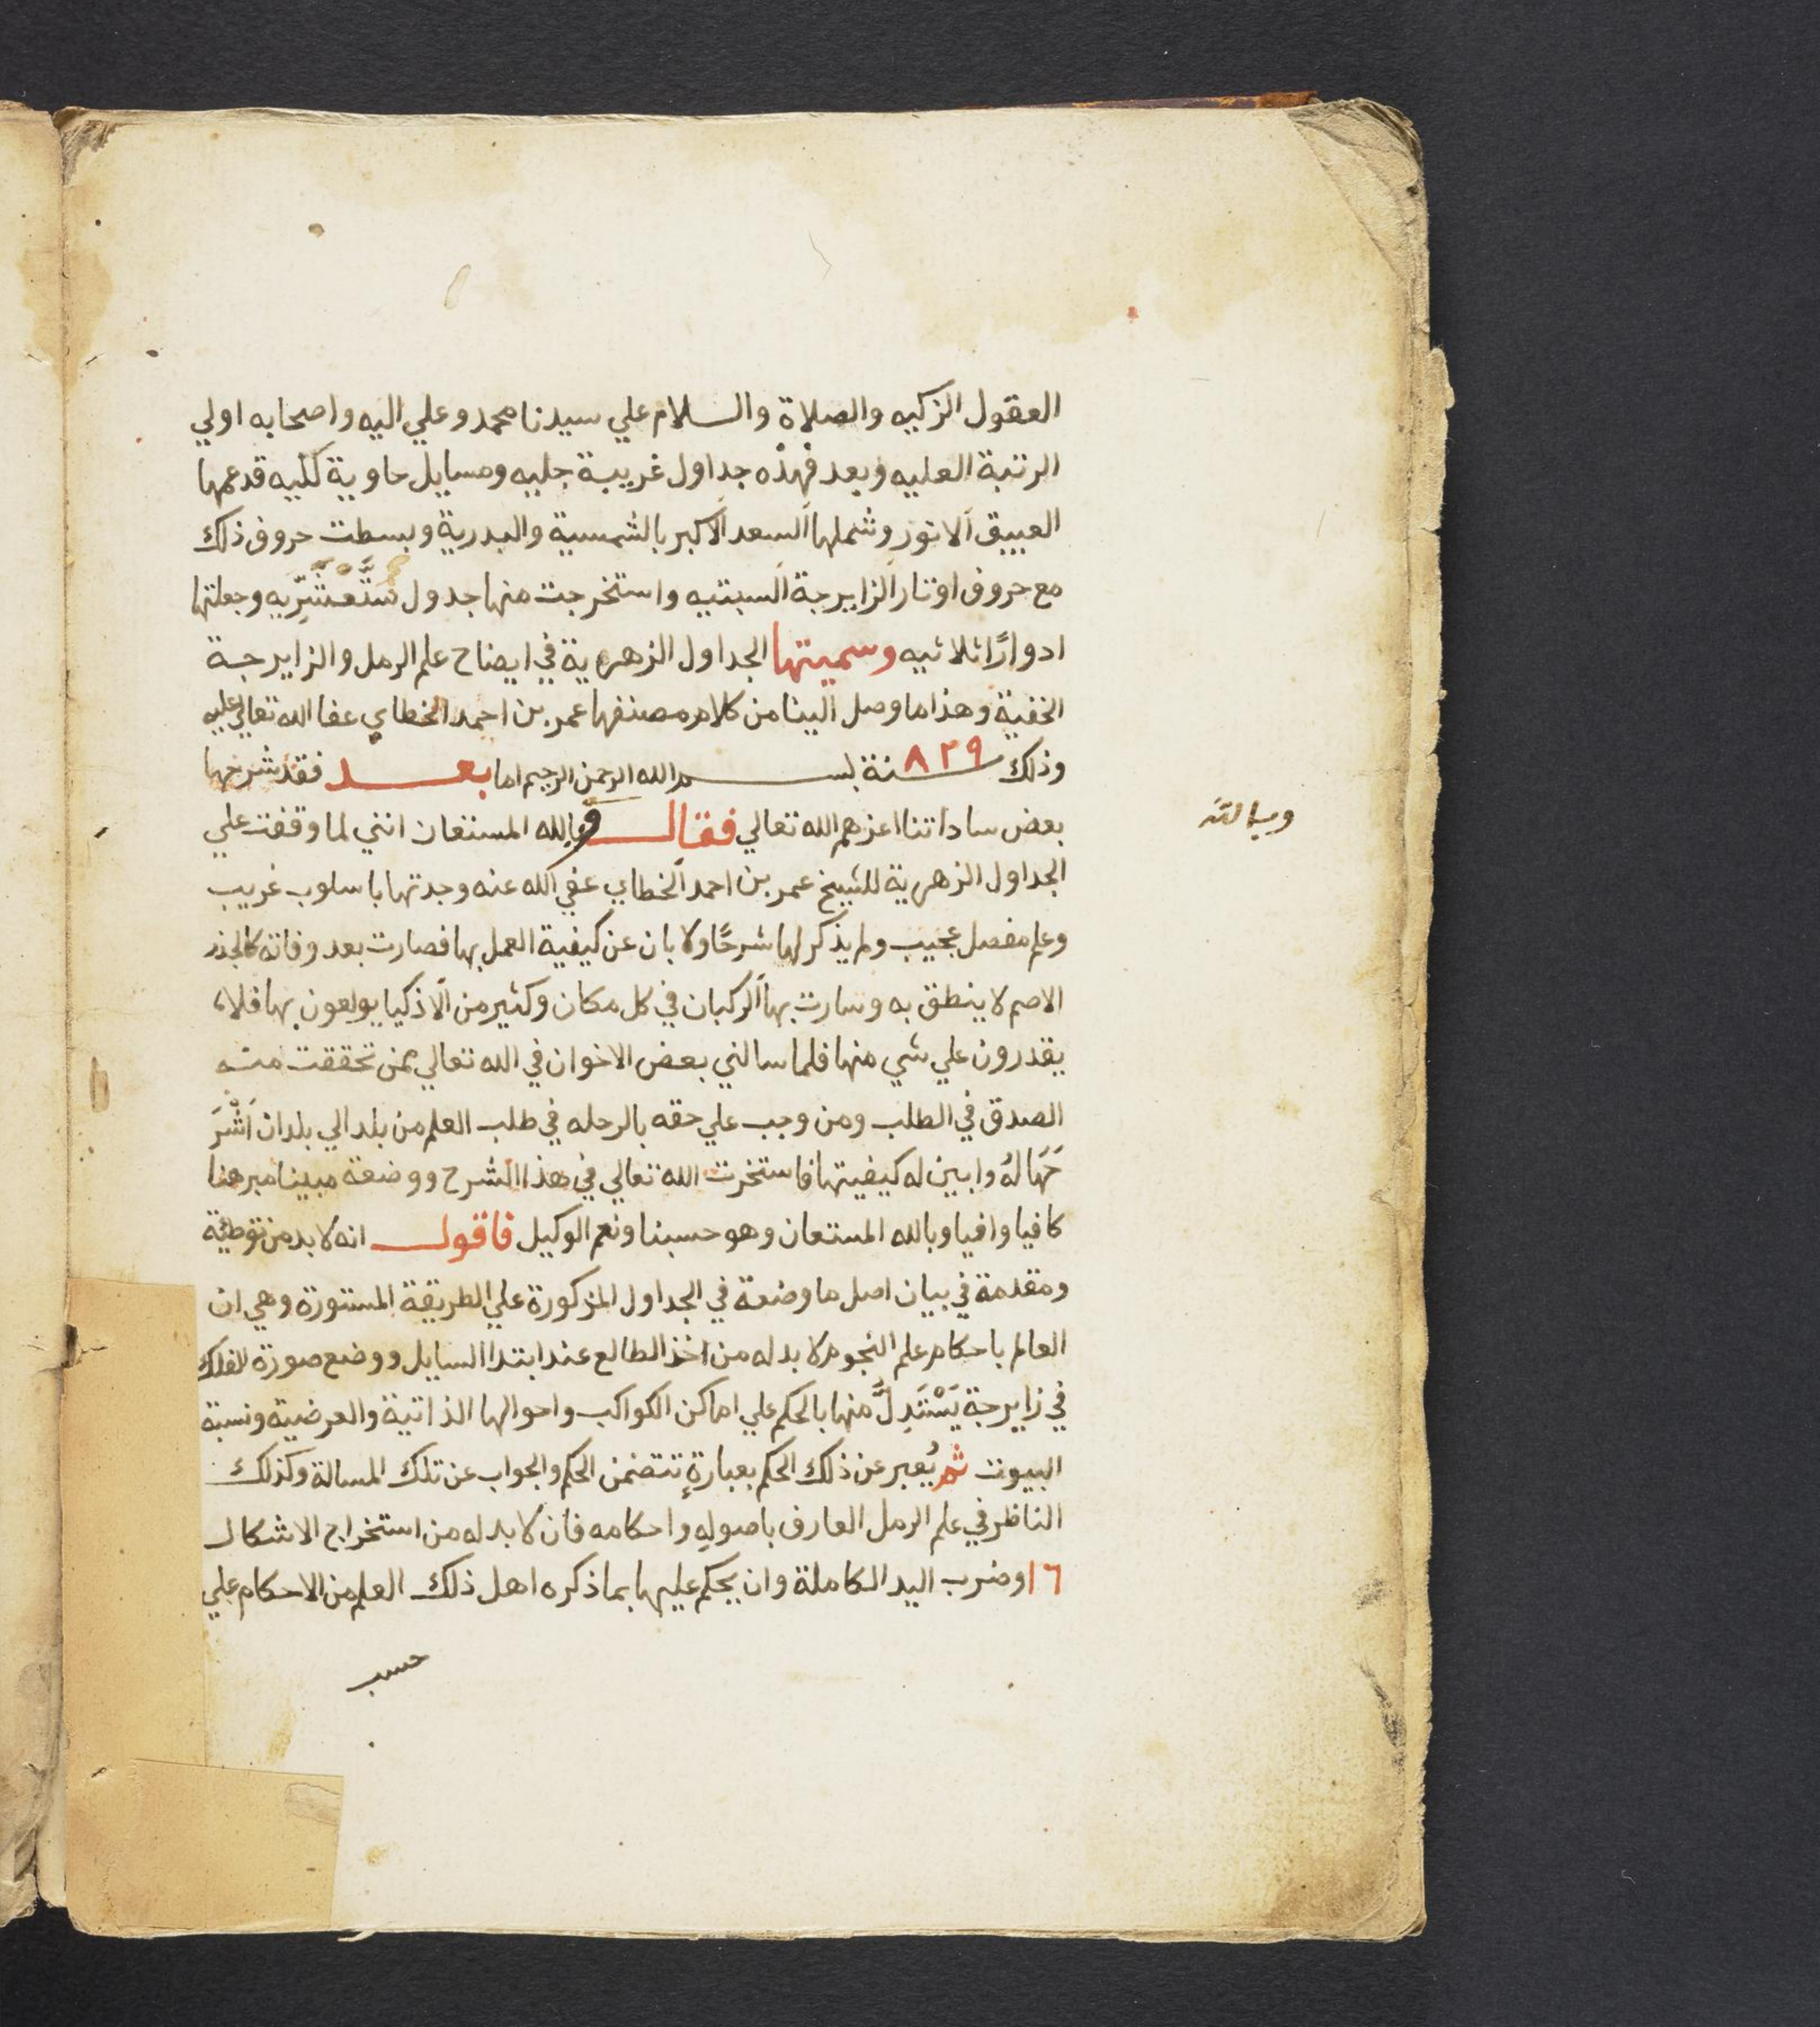 العقول الزكيه والصلاة والسلام علي سيدنا محمد وعلي اليه واصحابه اولي
الرتبة العليه وبعد فهذه جداول غريبة جليه ومسايل حاوية كليه قد عمها
العبيق الانور وشملها السعد الاكبر بالشمسية والبدرية وبسطت حروف ذلك
مع حروف اوتار الزايرجة السبتيه واستخرجت منها جدول وجعلتها
ادوارًا ثلاثيه وسميتها الجداول الزهرية في ايضاح علم الرمل والزايرجة
الخفية وهذا ما وصل الينا من كلام مصنفها عمر بن احمد الخطاي عفا الله تعالي عليه
وذلك سنة ٨٢٩ بسم الله الرحمن الرحيم اما بعد فقد شرحها
بعض ساداتنا اعزهم الله تعالي فقال وبالله المستعان انني لما وقفت علي
وبالله
الجداول الزهرية للشيخ عمر بن احمد الخطاي عفي الله عنه وجدتها باسلوب غريب
وعلم مفصل عجيب ولم يذكر لها شرحًا ولا بان عن كيفية العمل بها فصارت بعد وفاته كالجذر
الاصم لا ينطق به وسارت بها الركبان في كل مكان وكثير من الاذكيا يولعون بها فلا
يقدرون علي شي منها فلما سالني بعض الاخوان في الله تعالي ممن تحققت منه
الصدق في الطلب ومن وجب علي حقه بالرحله في طلب العلم من بلد الي بلد ان اَشْرَ
حَهَا لهُ وابين له كيفيتها فاستخرت الله تعالي في هذا الشرح ووضعة مبينا مبرهنا
كافيا وافيا وبالله المستعان وهو حسبنا ونعم الوكيل فاقول انه لا بد من توطئة
ومقدمة في بيان اصل ما وضعة في الجداول المزكورة علي الطريقة المستورة وهي ان
العالم باحكام علم النجوم لا بد له من اخذ الطالع عند ابتدا السايل ووضع صورة الفلك
في زايرجة يَسْتَدِلَّ منها بالحكم علي اماكن الكواكب واحوالها الذاتية والعرضية ونسبة
البيوت ثم يُعبر عن ذلك الحكم بعبارةٍ تتضمن الحكم والجواب عن تلك المسالة وكذلك
الناظر في علم الرمل العارف باصوله واحكامه فان لا بد له من استخراج الاشكال
١٦ وضرب اليد الكاملة وان يحكم عليها بما ذكره اهل ذلك العلم من الاحكام علي
حسب